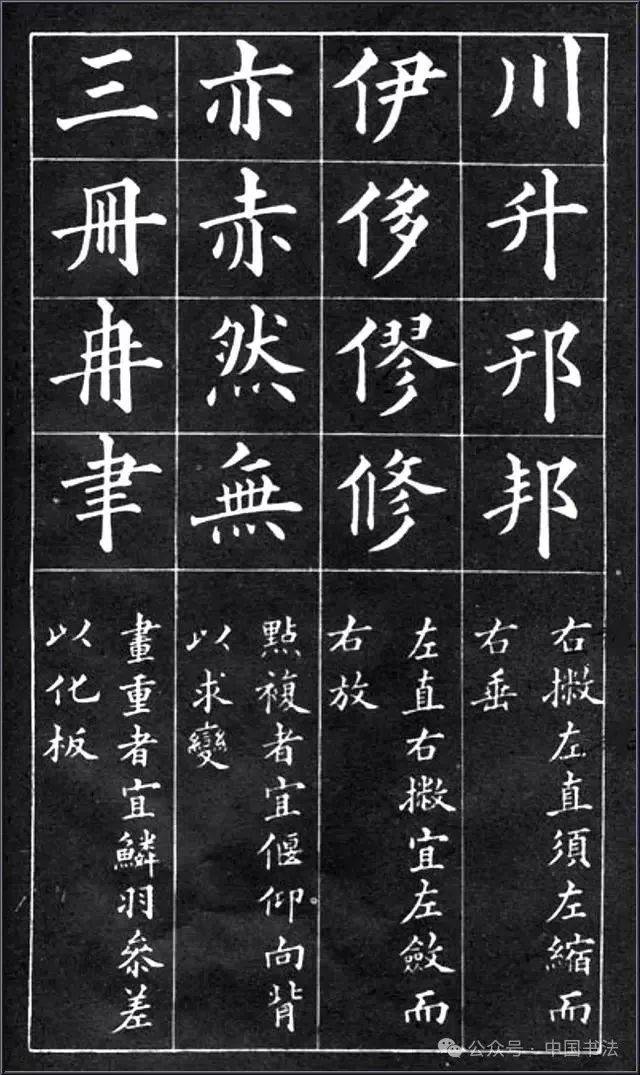 川
升
邘
邦
右撇左直須左縮而
右垂
伊
侈
僇
修
左直右撇宜左斂而
右放
亦
赤
然
無
點複者宜偃仰向背
以求變
三
冊
冉
聿
畫重者宜鱗羽參差
以化板
公众号·中国书法